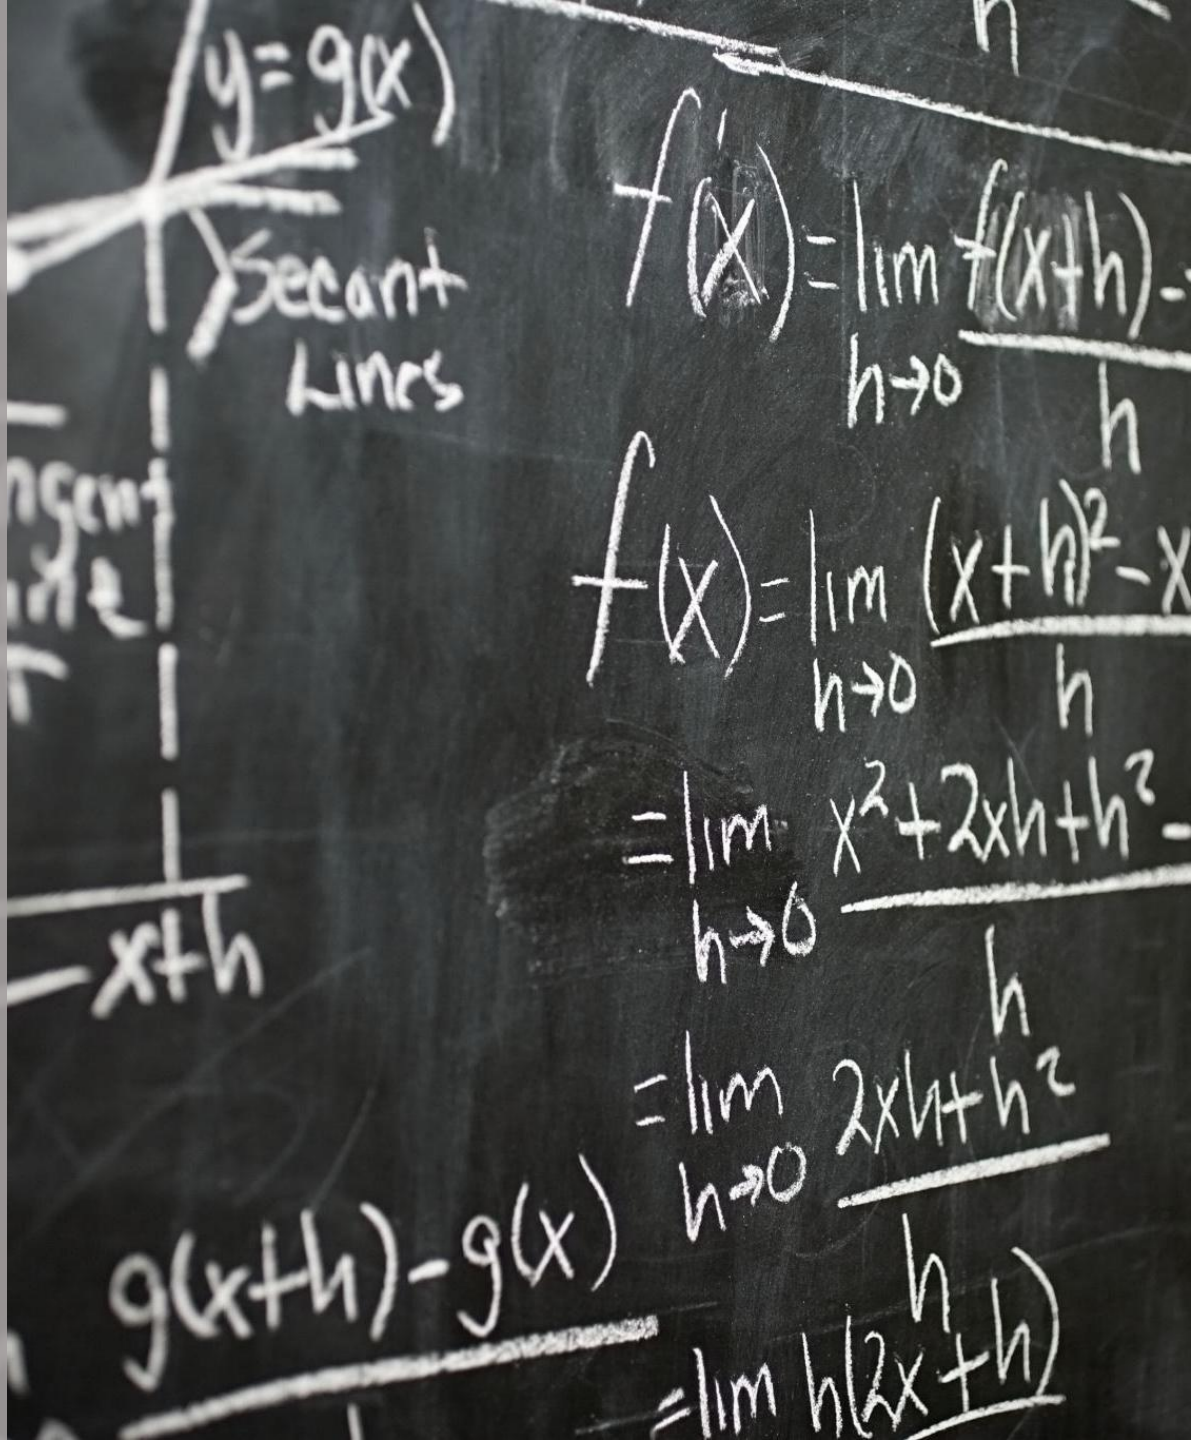 y=g(x)
Secant
Lines
ngent
ine
x+h
g(x+h)-g(x)
h
f'(x)=lim f(x+h)-
h→0 h
f(x)=lim (x+h)²-x
h→0 h
=lim x²+2xh+h²-
h→0 h
=lim 2xh+h²
h→0 h
=lim h(2x+h)